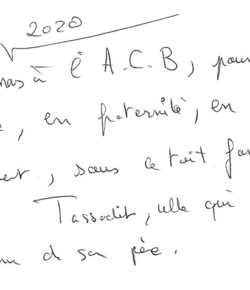 2020
à l' A.C.B, pour
, en fraternité, en
, sous le toit
Tassadit, elle qui
de sa père.